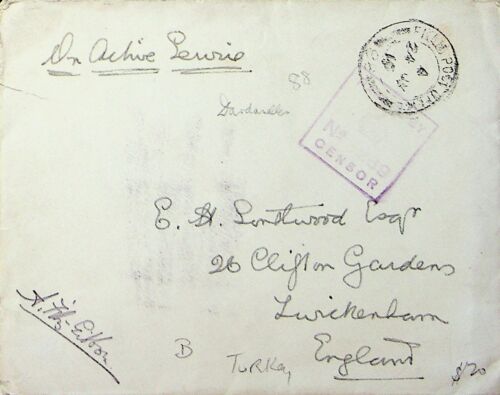 On Active Service
88
Dardanelles
FIELD POST OFFICE
No
CENSOR
E. H. Southwood Esqr
26 Clifton Gardens
Twickenham
England
B
Turkey
$20